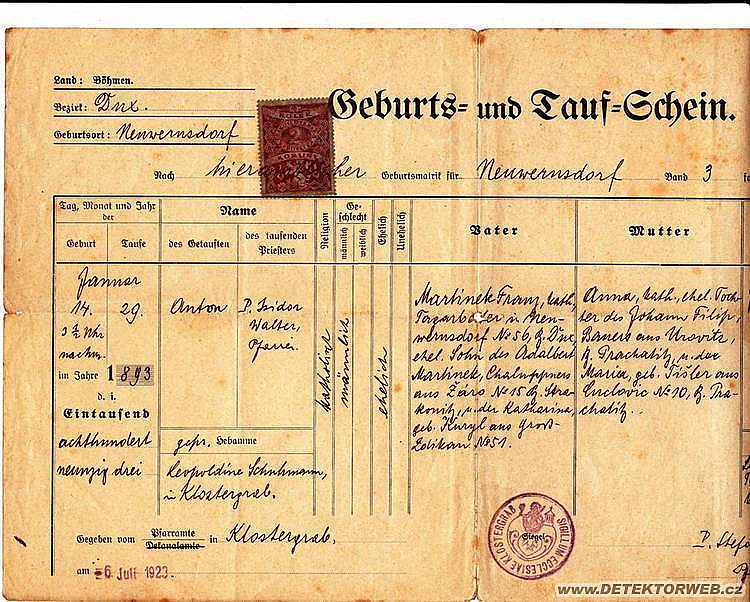 Land: Böhmen.
Bezirk: Dux.
Geburtsort: Neuwernsdorf
Geburts- und Tauf-Schein.
Nach hierämtlicher Geburtsmatrik für Neuwernsdorf Band 3
Tag, Monat und Jahr der
Geburt Taufe
Name
des Getauften
des taufenden Priesters
Religion
Geschlecht
männlich
weiblich
Ehelich
Unehelich
Vater
Mutter
Januar
14. 29.
3 ½ Uhr
nachm.
im Jahre 1893
d. i.
Eintausend
achthundert
neunzig drei
Anton
P. Isidor
Walter,
Pfarrer.
katholisch
männlich
ehelich
Martinek Franz, kath.,
Tagarbeiter in Neu-
wernsdorf No 56, B. Dux,
ehel. Sohn des Adalbert
Martinek, Chaluppners
aus Žáro No 15 B. Stra-
konitz, u. der Katharina,
geb. Kuryl aus Groß-
Zdikau No 51.
Anna, kath., ehel. Toch-
ter des Johann Filip,
Bauers aus
B. Prachatitz, u. der
Maria, geb. Fišler aus
No 10, B. Pra-
chatitz.
gepr. Hebamme
Leopoldine Schuhmann,
in Klostergrab.
Gegeben vom Pfarramte
Dekanalamte in Klostergrab,
am 6. Juli 1923.
Siegel
SIGILLUM ECCLESIAE KLOSTERGRAB
P. Stefa
www.DETEKTORWEB.cz